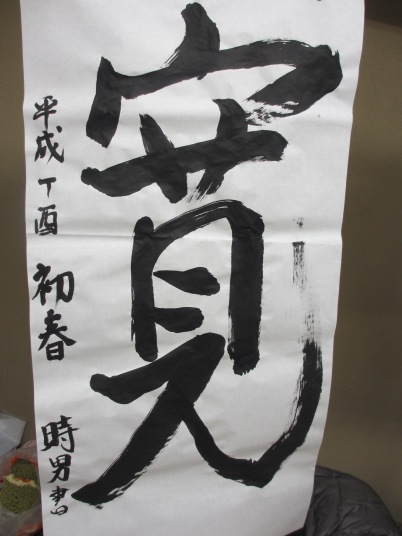 寛
平成丁酉 初春 時男書